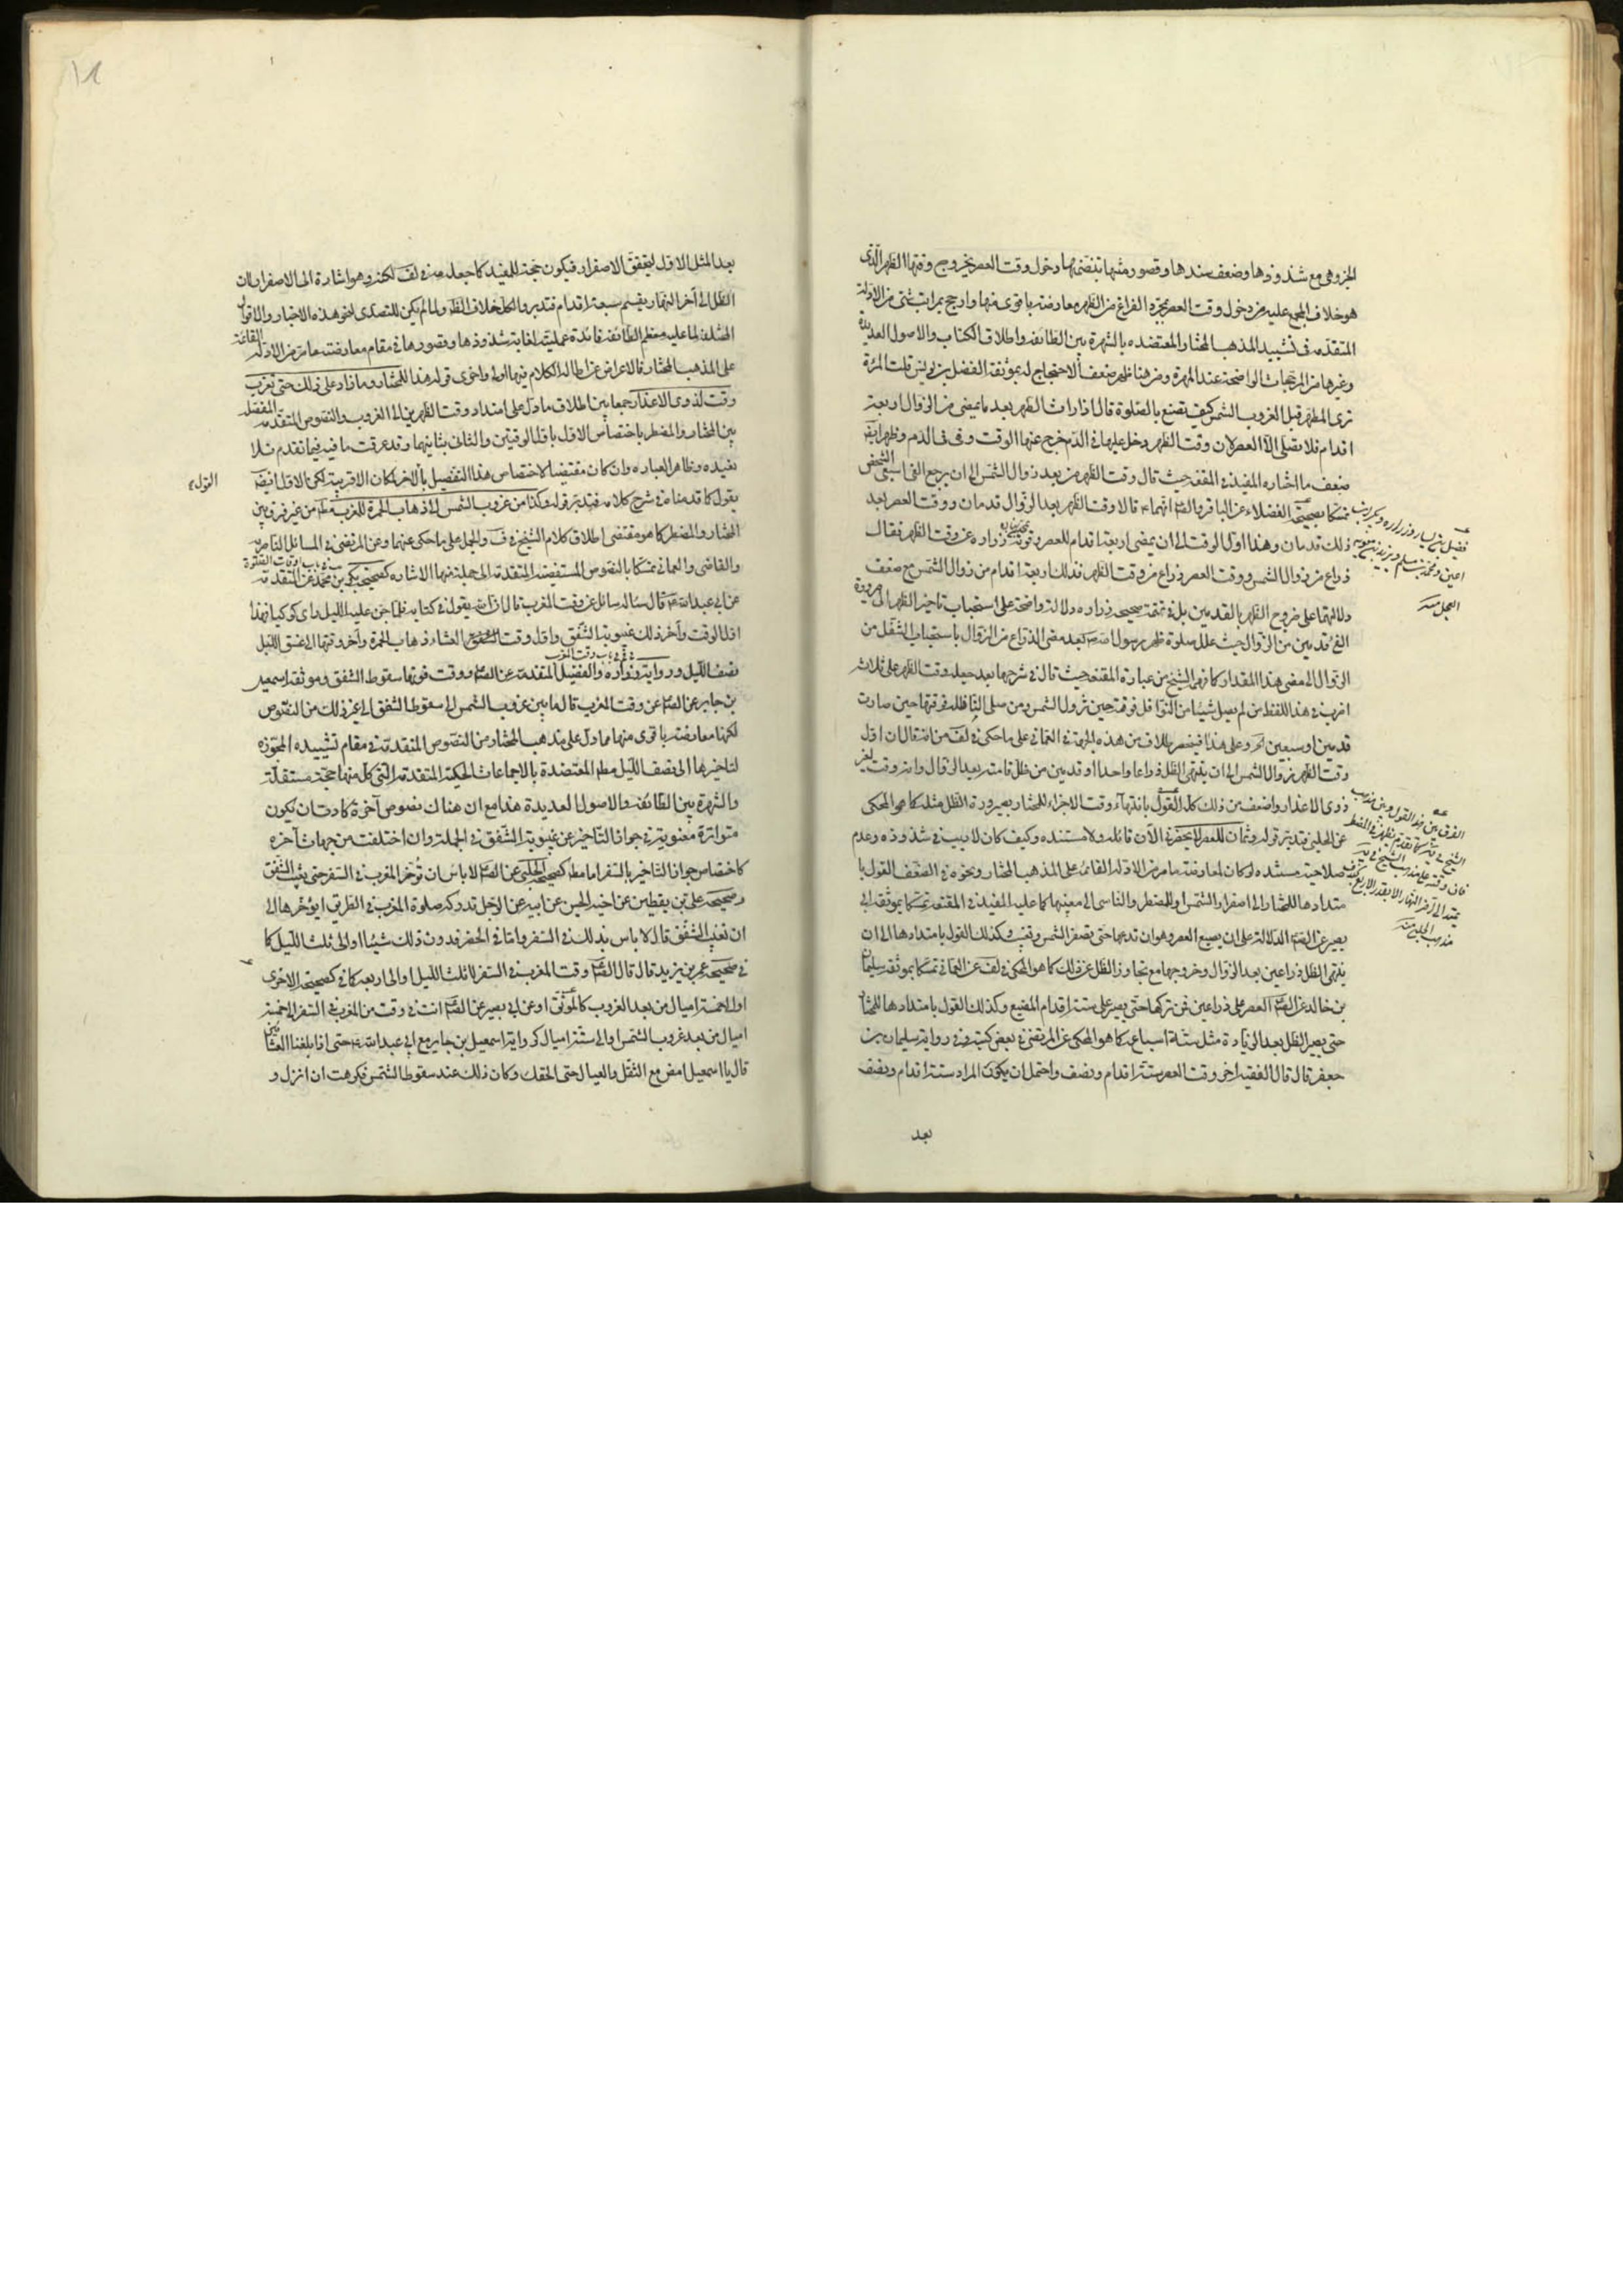 الجزو هي مع شذوذها وضعف سندها وقصور متنها بتضمنها دخول وقت العصر بخروج وقتها الظهر الذي
هو خلاف المجمع عليه من دخول وقت العصر بمجرد الفراغ من الظهر معارضة باقوى منها وارجح بمراتب شتى من الادلة
المتقدمة في تشييد المذهب المختار المعتضده بالشهرة بين الطائفه واطلاق الكتاب والاصول العديدة
وغيرها من المرجحات الواضحة عند المهرة ومن هنا ظهر ضعف الاحتجاج له بموثقة الفضل بن يونس قلت المرئة
ترى الطهر قبل الغروب الشمس كيف تصنع بالصلوة قال اذا رات الطهر بعد ما يمضى من الزوال اربعة
اقدام فلا تصلى الا العصر لان وقت الظهر دخل عليها في الدم خرج عنها الوقت وهي في الدم وظهر ايضا
ضعف ما اختاره المفيد في المقنعه حيث قال وقت الظهر من بعد زوال الشمس الى ان يرجع الفئ سبعى الشخص
تمسكا بصحيحة الفضلاء عن الباقر والصادق انهما قالا وقت الظهر بعد الزوال قدمان ووقت العصر بعد
ذلك قدمان وهذا اول الوقت الى ان يمضى اربعة اقدام للعصر وصحيحة زراره عن وقت الظهر فقال
ذراع من زوال الشمس ووقت العصر ذراع من وقت الظهر فذلك اربعة اقدام من زوال الشمس مع ضعف
دلالتهما على خروج الظهر بالقدمين بل في تتمة صحيحه زراره دلالة واضحة على استحباب تاخير الظهر الى صيرورة
الفئ قدمين من الزوال حيث علل صلوة ظهر رسول الله ص بعد مضى الذراع من الزوال باستحباب التنفل من
الزوال الى مضى هذا المقدار كما فهمه الشيخ من عبارة المقنعه حيث قال في شرحها بعد جعله وقت الظهر على ثلاثة
اضرب في هذا اللفظ من لم يصل شيئا من النوافل فوقته حين تزول الشمس ومن صلى النافله فوقتها حين صارت
قدمين او سبعين الخ وعلى هذا فينحصر الخلاف من هذه الجهة في العماني على ما حكى في لف من انه قال ان اول
وقت الظهر زوال الشمس الى ان ينتهى الظل ذراعا واحدا او قدمين من ظل قامته بعد الزوال وانه وقت لغير
ذوى الاعذار واضعف من ذلك كله القول بانتهاء وقت الاجزاء للمختار بصيرورة الظل مثله كما هو المحكى
عن الحلبي فتدبر قوله وثمان للعصر لا يحضرني الآن قائله ولا مستنده وكيف كان لا ريب في شذوذه وعدم
صلاحية مستنده لو كان لمعارضة ما مر من الادلة القائمة على المذهب المختار ونحوه في الضعف القول با
متدادها للمختار الى اصفرار الشمس وللمضطر والناسى الى مغيبها كما عليه المفيد في المقنعه تمسكا بموثقه ابى
بصير عن الصادق الدلالة على ان يضيع العصر وهو ان تدعها حتى تصفر الشمس وتغيب وكذلك القول بامتدادها الى ان
ينتهى الظل ذراعين بعد الزوال وخروجها مع تجاوز الظل عن ذلك كما هو المحكى في لف عن العماني تمسكا بموثقة سليمان
بن خالد عن الصادق العصر على ذراعين فمن تركها حتى يصير على ستة اقدام المضيع وكذلك القول بامتدادها للمختار
حتى يصير الظل بعد الزيادة مثل ستة اسباعه كما هو المحكى عن المرتضى في بعض كتبه وفي رواية سليمان بن
جعفر قال قال الفقيه اخر وقت العصر ستة اقدام ونصف واحتمل ان يكون المراد ستة اقدام ونصف
بعد
فضيل بن يسار وزراره وبكير ابنى
اعين ومحمد بن مسلم وبريد بن معويه
العجلى منه
بعد المثل الاول لتحقق الاصفرار فيكون حجة للمفيد كما جعله منه في لف لكنه وهو اشارة الى الاصفرار لان
الظل الى آخر النهار يقسم سبعة اقدام فتدبر والكل خلاف الظاهر ولما لم يكن للتصدى لنحو هذه الاخبار والاقوال
المخالفة لما عليه معظم الطائفه فائدة عملية لغاية شذوذها وقصورها في مقام معارضة ما مر من الادلة القائمة
على المذهب المختار فالاعراض عن اطاله الكلام فيها اولى واحرى قوله هذا للمختار وما زاد على ذلك حتى تغرب
وقت لذوى الاعذار جمعا بين اطلاق ما دل على امتداد وقت الظهرين الى الغروب والنصوص المتقدمة المفصله
بين المختار والمضطر باختصاص الاول باول الوقتين والثانى بثانيهما وقد عرفت ما فيه فيما تقدم فلا
نعيده وظاهر العباره وان كان مقتضيا لاختصاص هذا التفصيل بالاخر لمكان الاقربية لكن الاول ايضا
يقول كما قدمناه في شرح كلامه فتدبر قوله وكذا من غروب الشمس الى ذهاب الحمرة للمغرب مط من غير فرق بين
المختار والمضطر كما هو مقتضى اطلاق كلام الشيخ في ف والجمل على ما حكى عنهما وعن المرتضى في المسائل الناصرية
والقاضى والعماني تمسكا بالنصوص المستفيضة المتقدمة الى جملة منها الاشاره كصحيحة بكر بن محمد عن المتقدمة
عن ابي عبد الله ع قال سئاله سائل عن وقت المغرب قال ان الله يقول في كتابه فلما جن عليه الليل راى كوكبا فهذا
اول الوقت وآخر ذلك غيبوبة الشفق واول وقت العشاء ذهاب الحمرة وآخر وقتها الى غسق الليل
نصف الليل ورواية زراره والفضيل المتقدمة عن الصادق ووقت فوتها سقوط الشفق وموثقه اسمعيل
بن جابر عن الصادق عن وقت المغرب قال ما بين غروب الشمس الى سقوط الشفق الى غير ذلك من النصوص
لكنها معارضة باقوى منها مما دل على مذهب المختار من النصوص المتقدمة في مقام تشييده المجوزه
لتاخيرها الى نصف الليل مط المعتضدة بالاجماعات المحكية المتقدمة التي كل منها حجة مستقلة
والشهرة بين الطائفه والاصول العديدة هذا مع ان هناك نصوص آخرة كادت ان يكون
متواترة معنوية في جواز التاخير عن غيبوبة الشفق في الجملة وان اختلفت من جهات آخره
كاختصاص جواز التاخير بالسفر اما مط كصحيحة الحلبى عن الصادق لا باس ان تؤخر المغرب في السفر حتى يغيب الشفق
وصحيحه على بن يقطين عن اخيه الحسن عن ابيه عن الرجل تدركه صلوة المغرب في الطريق ايؤخرها الى
ان تغيب الشفق قال لا باس بذلك في السفر واما في الحضر فدون ذلك شيئا او الى ثلث الليل كما
في صحيحه عمر بن يزيد قال قال الصادق وقت المغرب في السفر الى ثلث الليل او الى ربعه كما في كصحيحة الاخرى
او الى خمسة اميال من بعد الغروب كالموثق او عن ابي بصير عن الصادق انت في وقت من المغرب في السفر الى خمسة
اميال من بعد غروب الشمس او الى ستة اميال كرواية اسمعيل بن جابر مع ابي عبد الله ع حتى اذا بلغنا العشائين
قال يا اسمعيل امض مع الثقل والعيال حتى الحقك وكان ذلك عند سقوط الشمس فكرهت ان انزل و